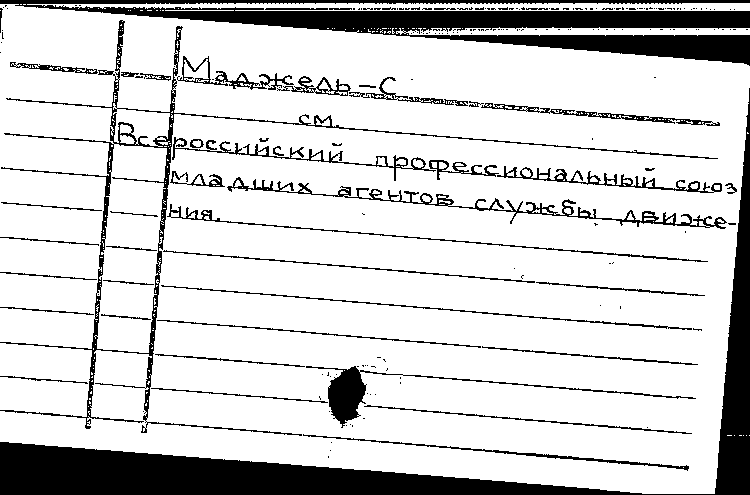 Маджель-С
см.
Всероссийский профессиональный союз
младших агентов службы движе-
ния.